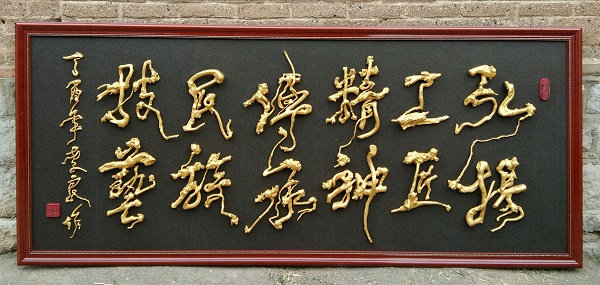 弘揚
工匠
精神
傳承
民族
技藝
丁酉年李作